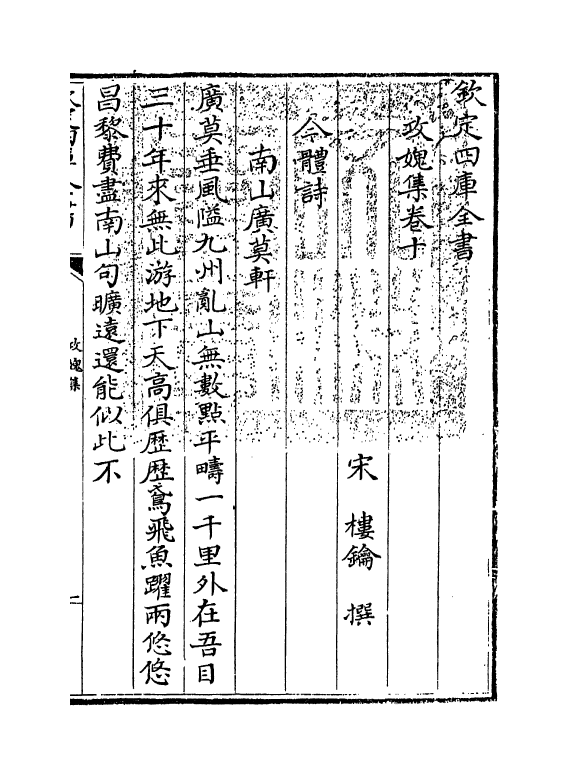 欽定四庫全書
攻媿集卷十
宋 樓鑰 撰
今體詩
南山廣莫軒
廣莫垂風隘九州亂山無數點平疇一千里外在吾目
三十年來無此游地下天高俱歴歴鳶飛魚躍兩悠悠
昌黎費盡南山句曠遠還能似此不
攻媿集
一